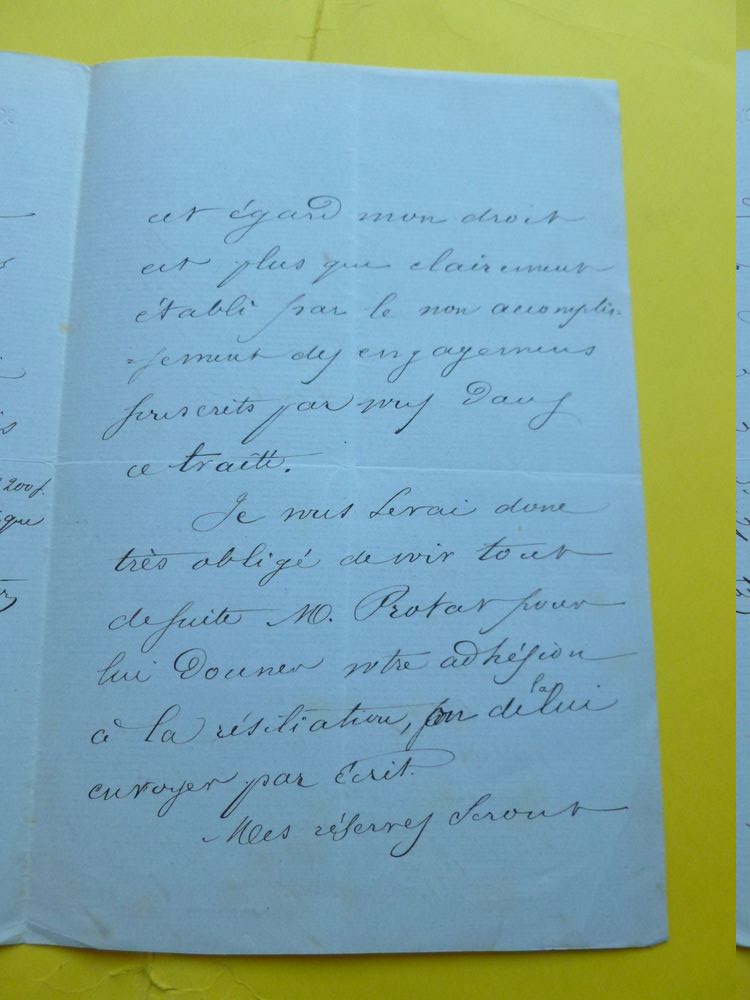 200f.
que
cet égard mon droit
est plus que clairement
établi par le non accomplis-
=sement des engagemens
souscrits par vous dans
ce traité.
Je vous serai donc
très obligé de voir tout
de suite M. Protat pour
lui donner votre adhésion
à la résiliation, ou de la lui
envoyer par écrit.
Mes réserves seront